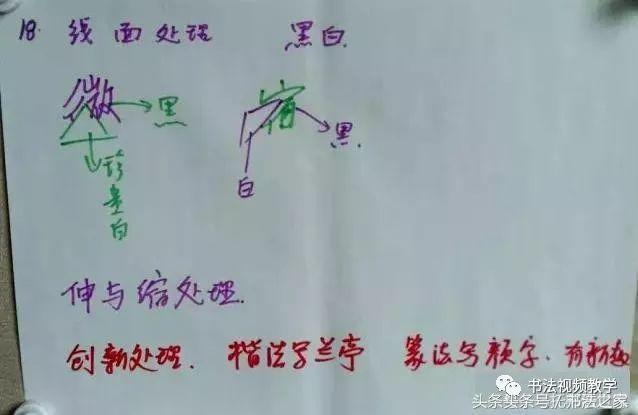 18. 线面处理 黑白
微 → 黑 宿 → 黑.
珍贵白 白
伸与缩处理.
创新处理. 楷法写兰亭 篆法写颜字. 有新
书法视频教学
头条